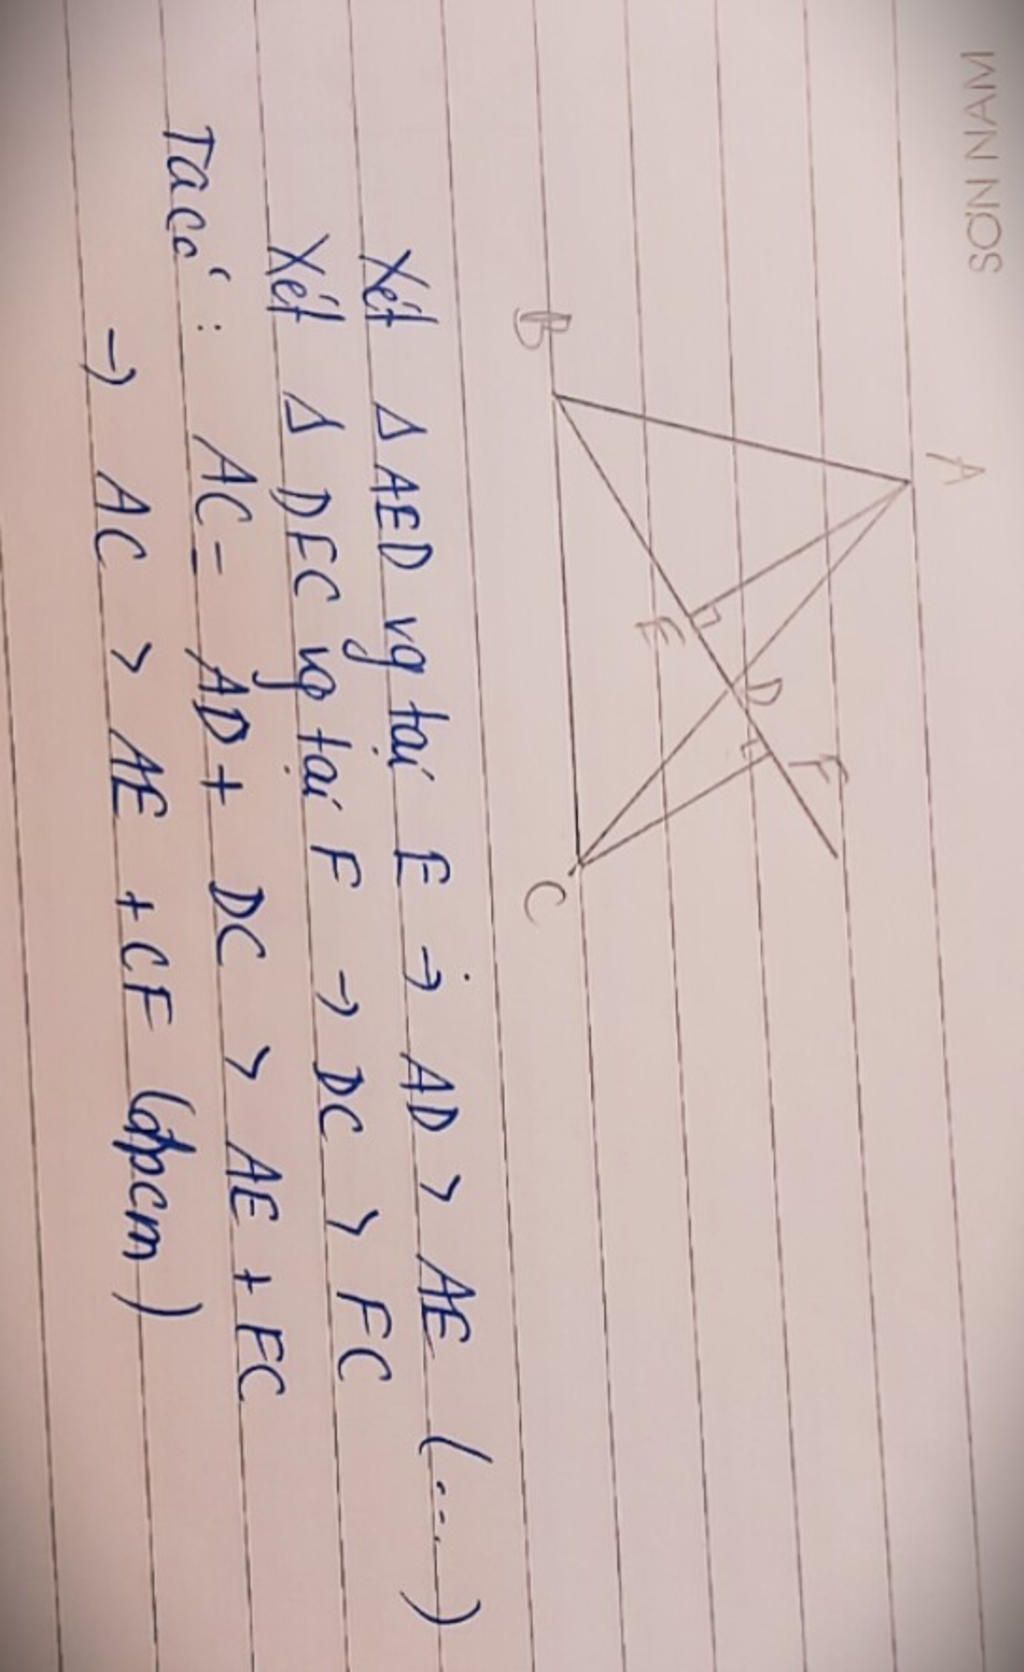 SƠN NAM
A
B
E
D
F
C
Xét Δ AED vg tại E → AD > AE (....)
Xét Δ DFC vg tại F → DC > FC
Ta có : AC = AD + DC > AE + FC
→ AC > AE + CF (đpcm)